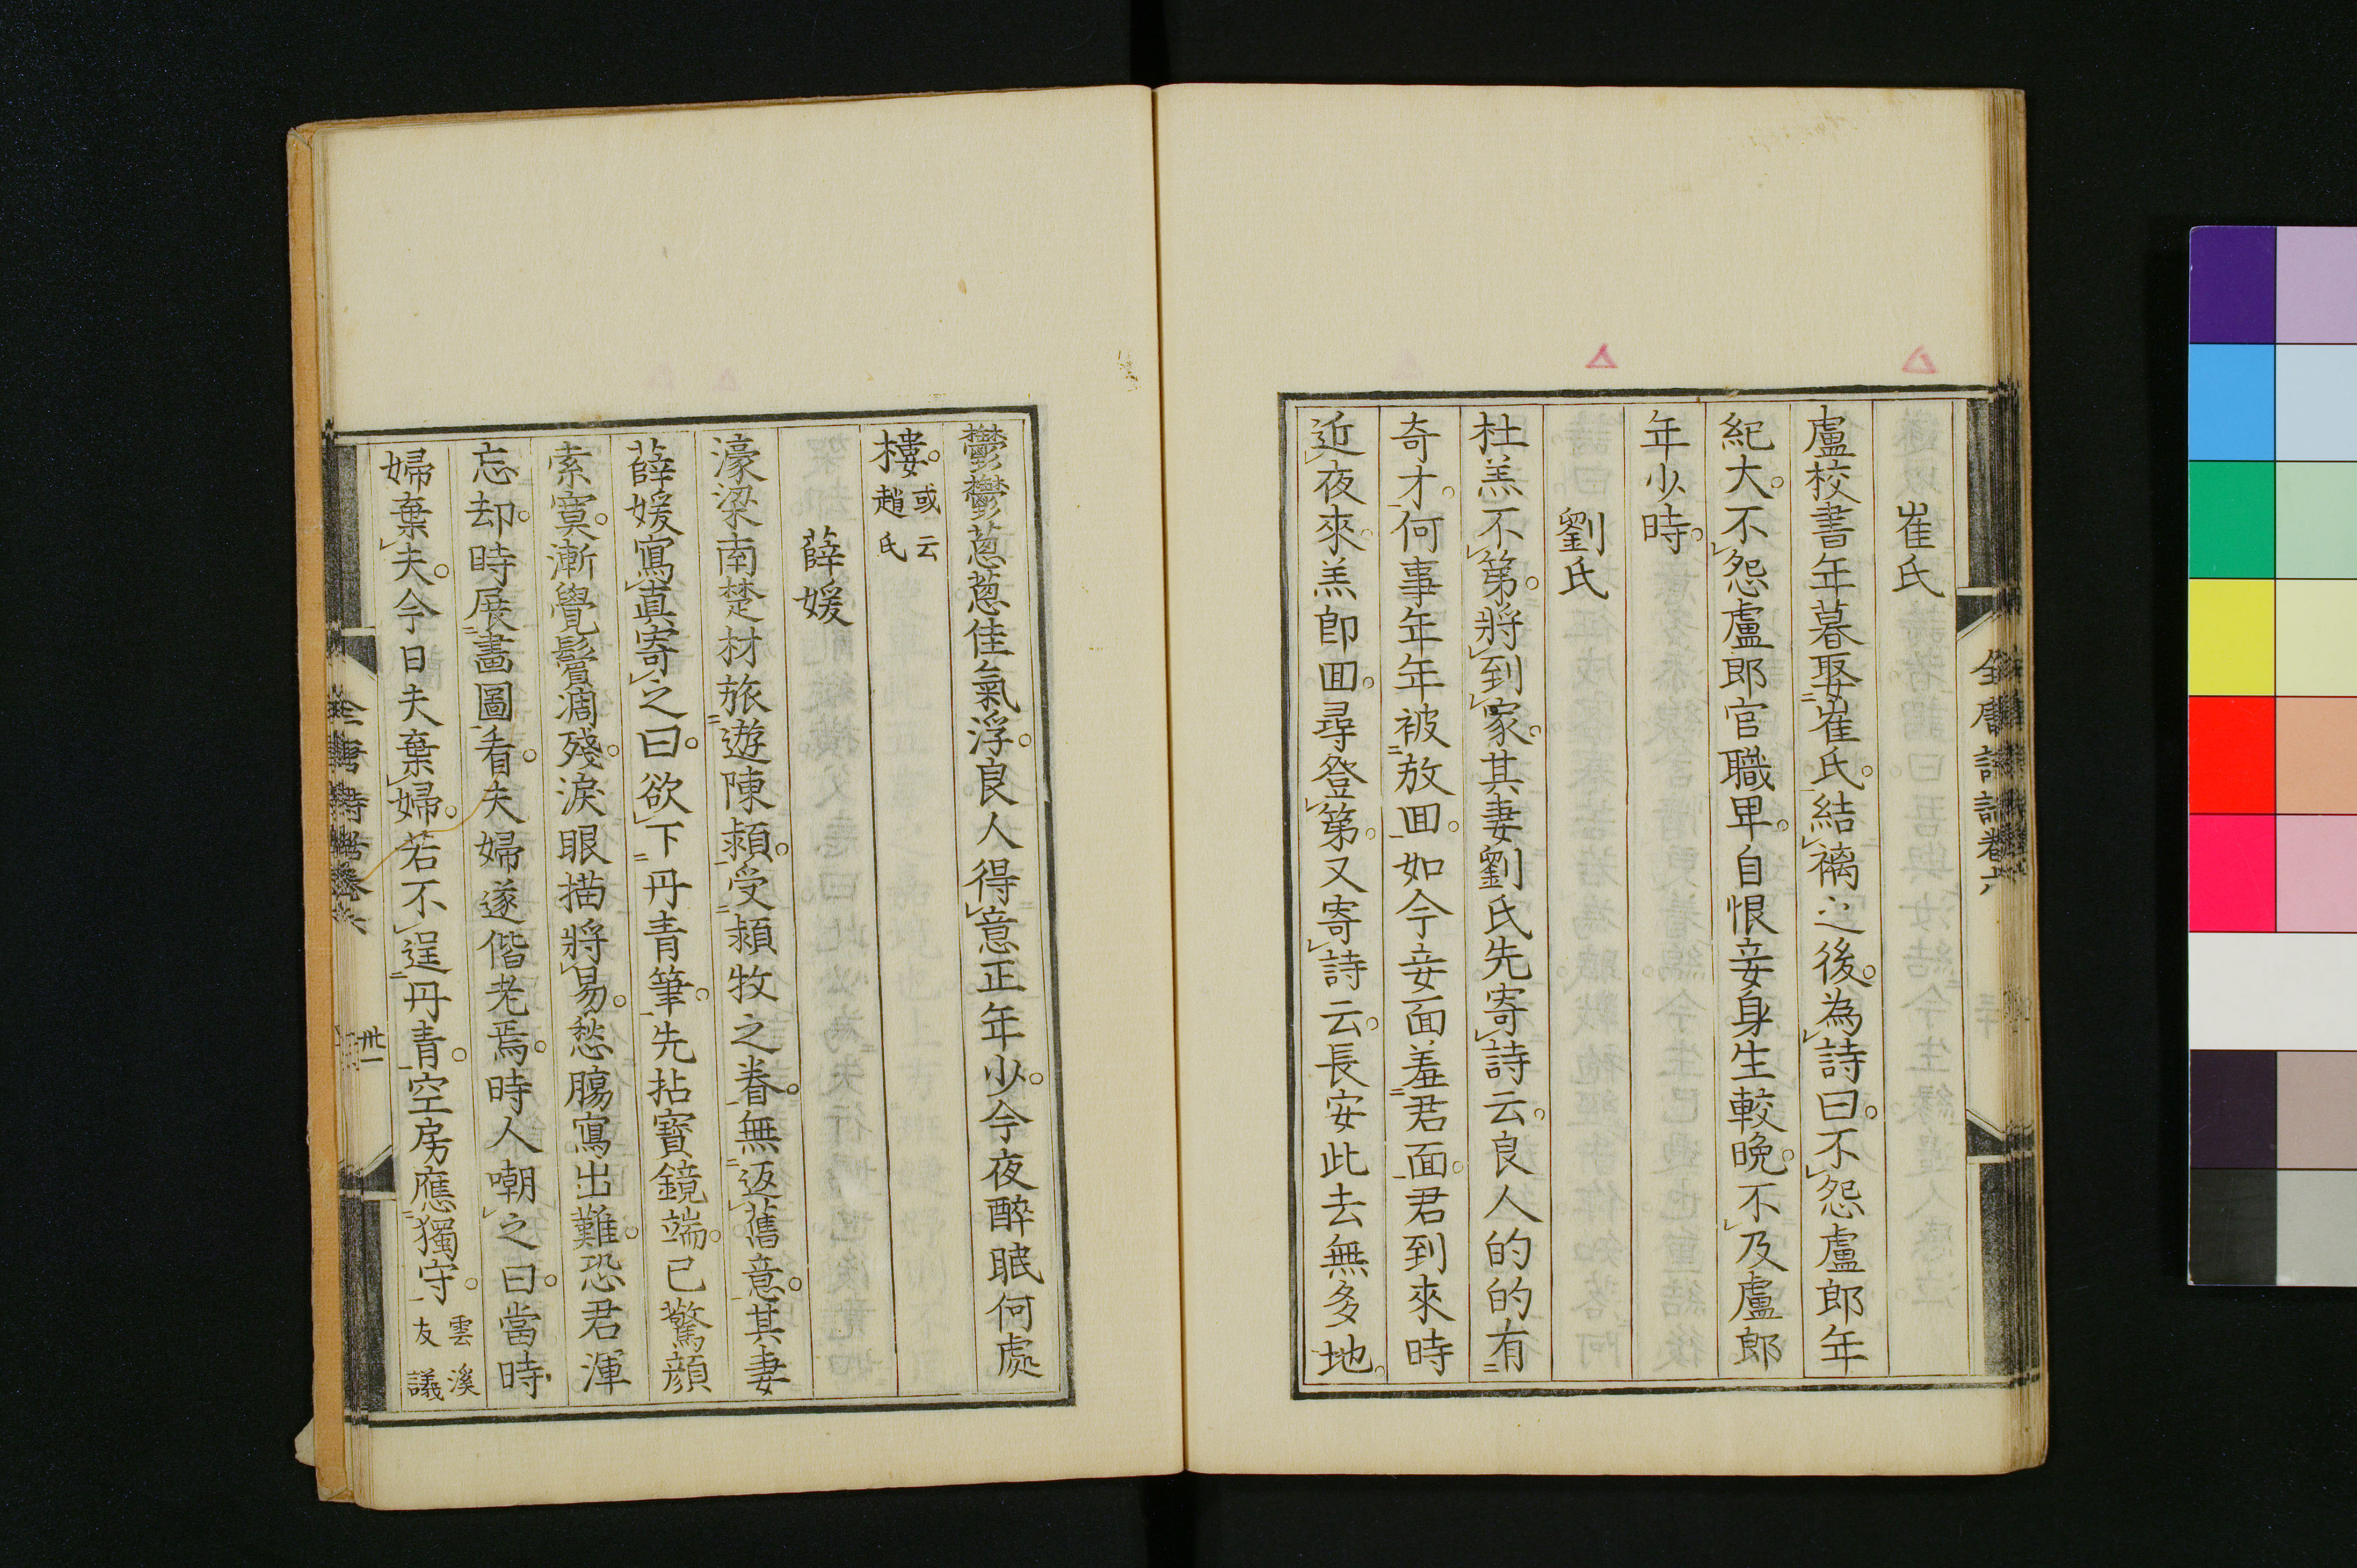 崔氏
盧校書年暮娶崔氏。結褵之後。為詩曰。不怨盧郎年
紀大。不怨盧郎官職卑。自恨妾身生較晚。不及盧郎
年少時。
劉氏
杜羔不第。將到家。其妻劉氏先寄詩云。良人的的有
奇才。何事年年被放回。如今妾面羞君面。君到來時
近夜來。羔即回。尋登第。又寄詩云。長安此去無多地。
鬱鬱蔥蔥佳氣浮。良人得意正年少。今夜醉眠何處
樓。或云趙氏
薛媛
濠梁南楚材旅遊陳潁。受潁牧之眷。無返舊意。其妻
薛媛寫真寄之曰。欲下丹青筆。先拈寶鏡端。已驚顏
索寞。漸覺鬢凋殘。淚眼描將易。愁腸寫出難。恐君渾
忘却。時展畫圖看。夫婦遂偕老焉。時人嘲之曰。當時
婦棄夫。今日夫棄婦。若不逞丹青。空房應獨守。雲溪友議
全唐詩話卷六
卅一